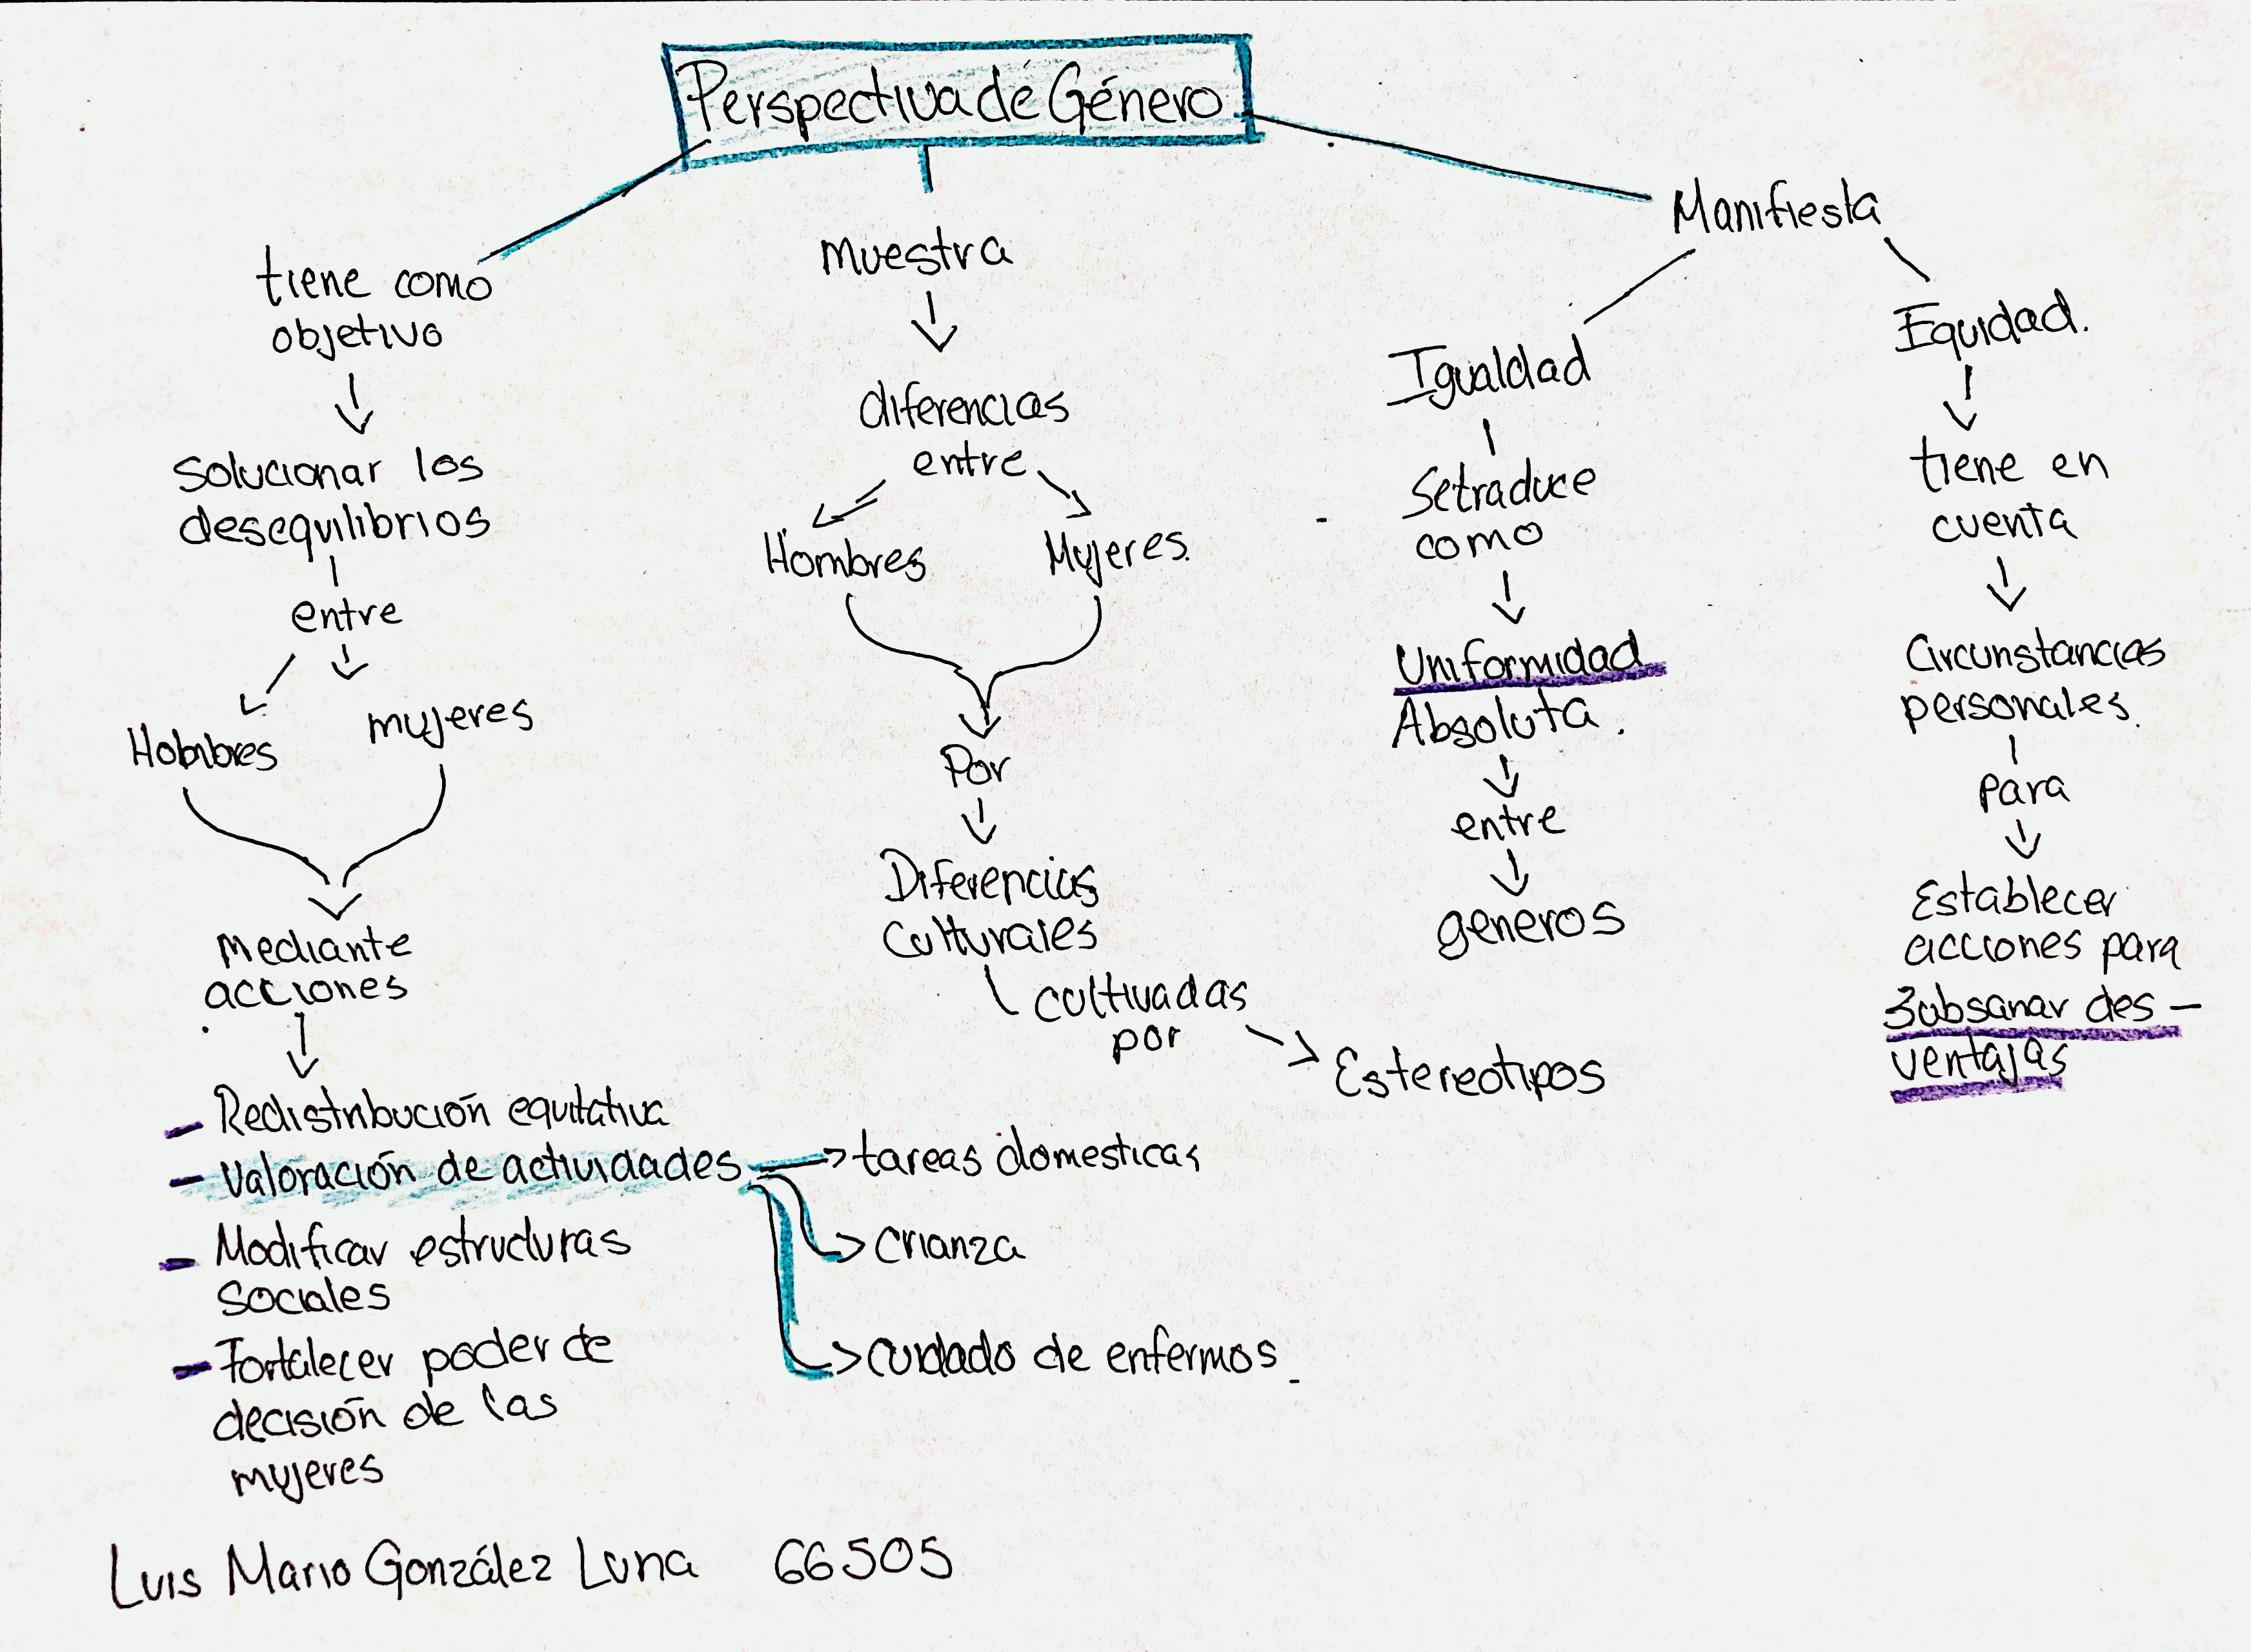 Perspectiva de Género
tiene como
objetivo
solucionar los
desequilibrios
entre
Hombres
mujeres
Mediante
acciones
- Redistribución equitativa
- Valoración de actividades
tareas domesticas
crianza
cuidado de enfermos
- Modificar estructuras
sociales
- Fortalecer poder de
decisión de las
mujeres
muestra
diferencias
entre
Hombres
Mujeres.
Por
Diferencias
Culturales
cultivadas
por
Estereotipos
Manifiesta
Igualdad
Se traduce
como
Uniformidad
Absoluta.
entre
generos
Equidad.
tiene en
cuenta
Circunstancias
personales.
para
Establecer
acciones para
Subsanar des-
ventajas
Luis Mario González Luna 66505